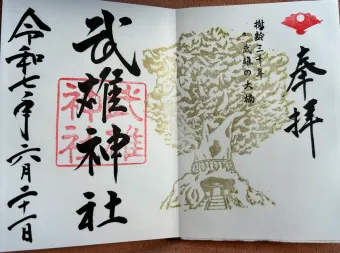 奉拝
樹齢三千年
武雄の大楠
武雄神社
武雄
神社
令和七年六月二十一日